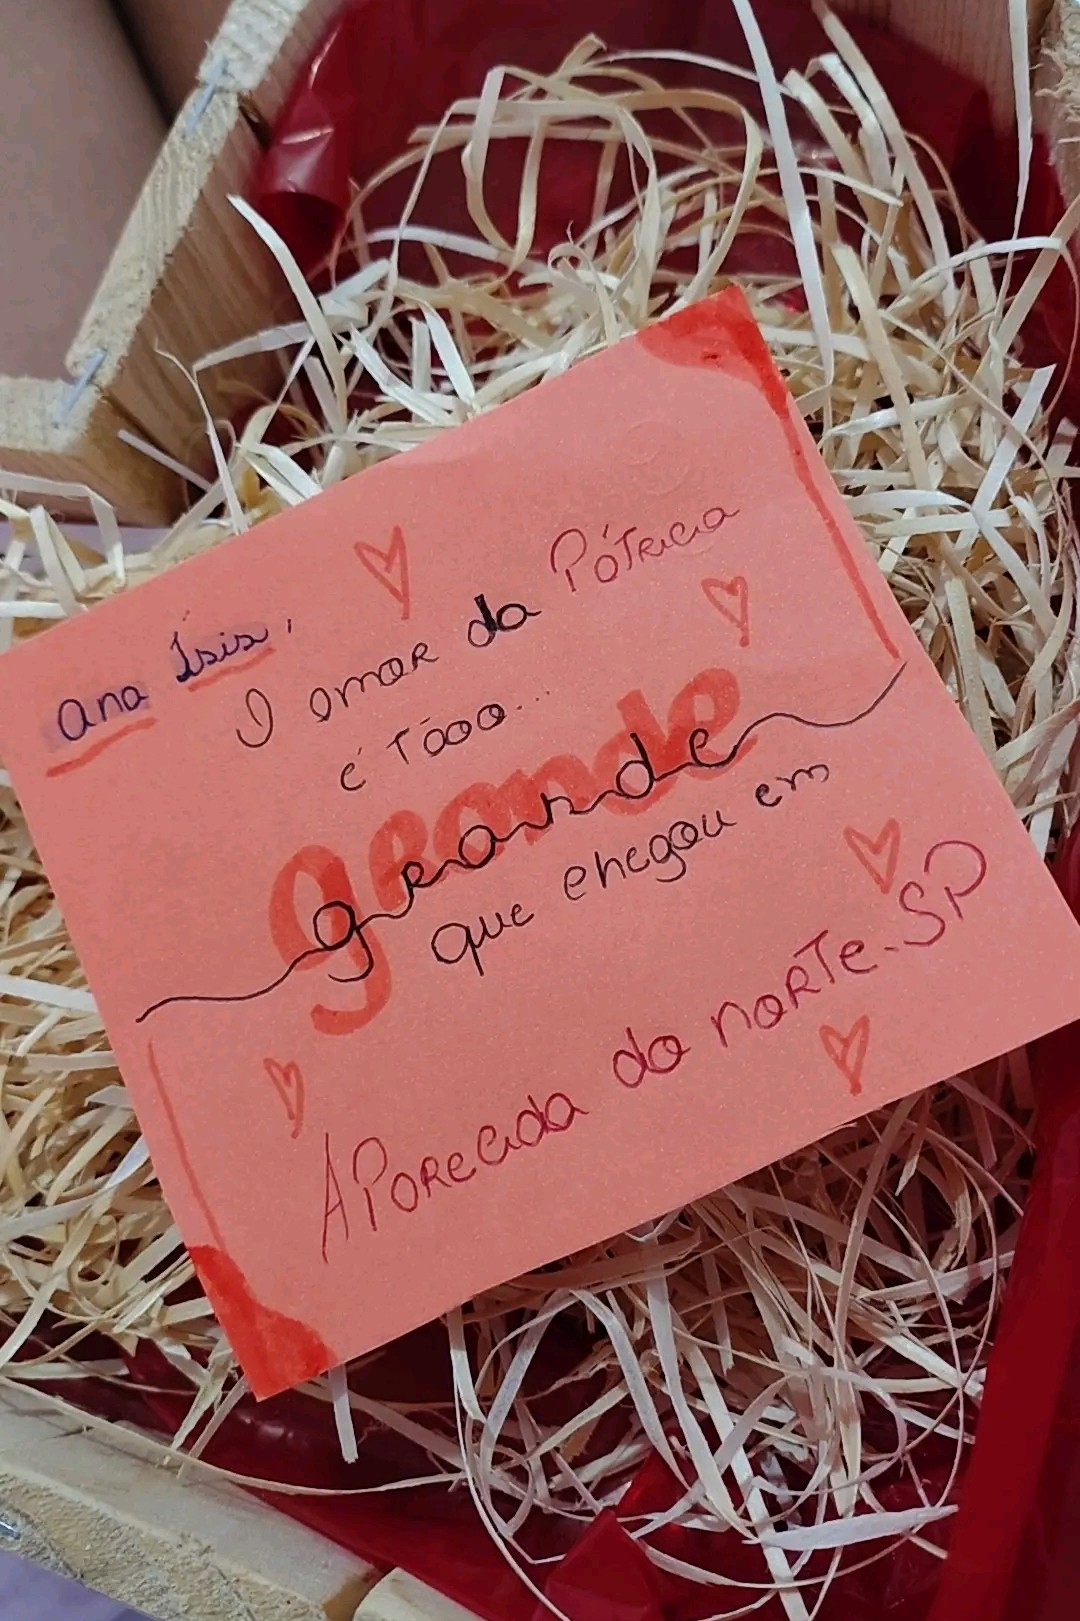 Ana Ísis,
O amor da Pátricia
é Tãoo...
grande
que chegou em
Aparecida do norte-SP